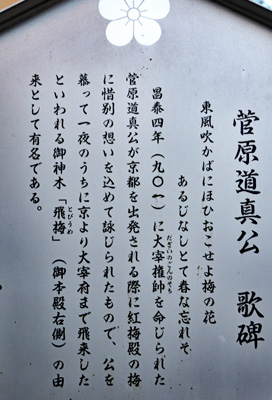 菅原道真公　歌碑
東風吹かばにほひおこせよ梅の花
あるじなしとて春な忘れそ
昌泰四年（九〇一）に大宰権帥を命じられた
だざいのごんのそち
菅原道真公が京都を出発される際に紅梅殿の梅
に惜別の想いを込めて詠じられたもので、公を
慕って一夜のうちに京より大宰府まで飛来した
といわれる御神木「飛梅」（御本殿右側）の由
とびうめ
来として有名である。